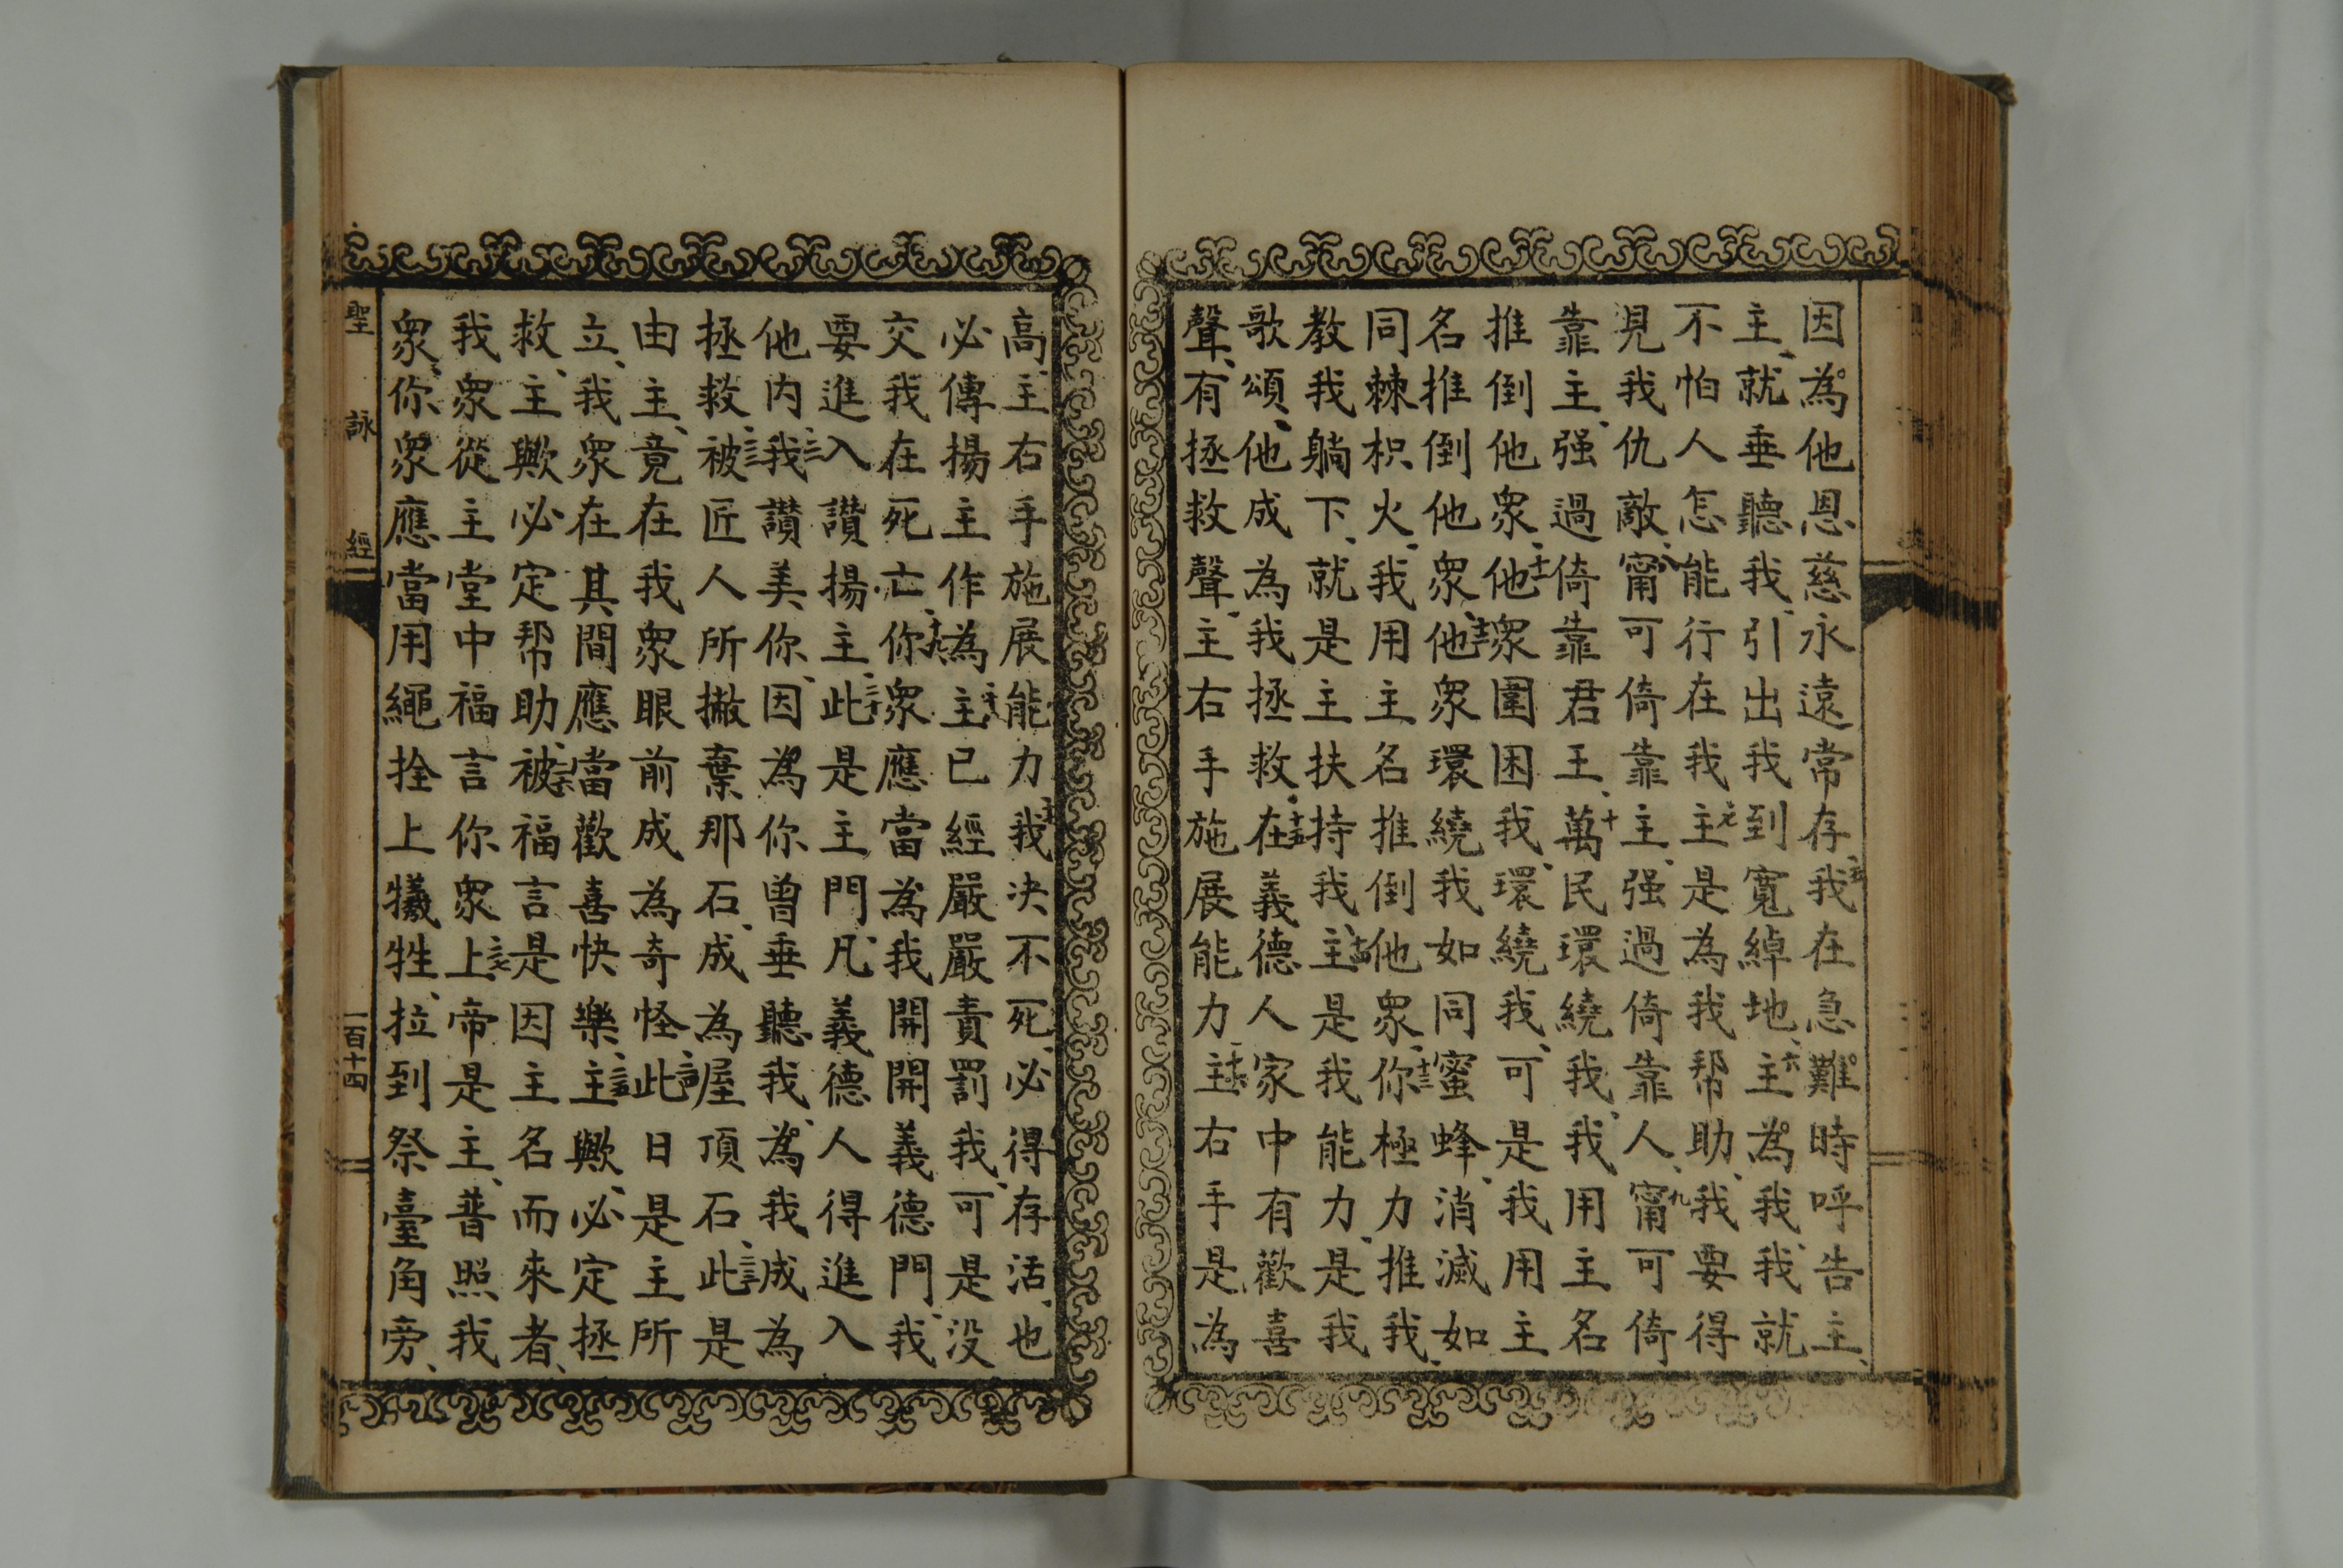 因為他恩慈永遠常存五我在急難時呼告主、
主、就垂聽我、引出我到寬綽地、六主為我、我就
不怕人怎能行在我七主是為我帮助、我要得
見我仇敵、八甯可倚靠主、强過倚靠人、九甯可倚
靠主、强過倚靠君王、十萬民環繞我、我用主名
推倒他衆、十一他衆圍困我、環繞我、可是我用主
名推倒他衆、十二他衆環繞我如同蜜蜂、消滅如
同棘枳火、我用主名推倒他衆、十三你極力推我、
教我躺下、就是主扶持我、十四主是我能力、是我
歌頌、他成為我拯救、十五在義德人家中有歡喜
聲、有拯救聲、主右手施展能力、十六主右手是為
高、主右手施展能力、十七我决不死、必得存活、也
必傳揚主作為、十八主已經嚴嚴責罰我、可是没
交我在死亡、十九你衆應當為我開開義德門、我
要進入讃揚主、二十此是主門、凡義德人得進入
他内、二一我讃美你、因為你曾垂聽我、為我成為
拯救、二二被匠人所撇棄那石、成為屋頂石、二三此是
由主、竟在我衆眼前成為奇怪、二四此日是主所
立、我衆在其間應當歡喜快樂、二五主歟、必定拯
救、主歟必定帮助、二六被福言是因主名而來者、
我衆從主堂中福言你衆、二七上帝是主、普照我
衆、你衆應當用繩拴上犧牲、拉到祭臺角旁、
聖詠經 一百十四